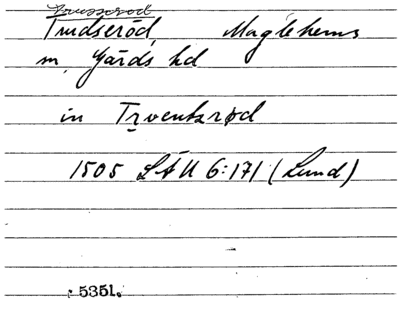 Trussaröd
Trudseröd, Maglehems
sn, Gärds hd
in Trventzrød
1505 LÄU 6:171 (Lund)
5351.